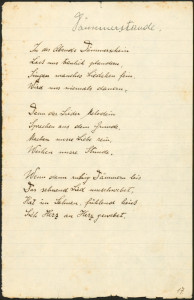 Dämmerstunde.
In des Abends Dämmerschein
Lass uns heimlich plaudern
Singen manches Liedchen fein,
Wird uns niemals dauern.
Denn der Lieder Melodein
Sprechen aus dem Grunde,
unsre Liebe rein,
unsre Stunde.
Wenn dann ruhig Dämmern leis
Das sehnend Lied umschwebet,
Hat im Sehnen, fühlend heiss
Sich Herz an Herz gewebet.
19